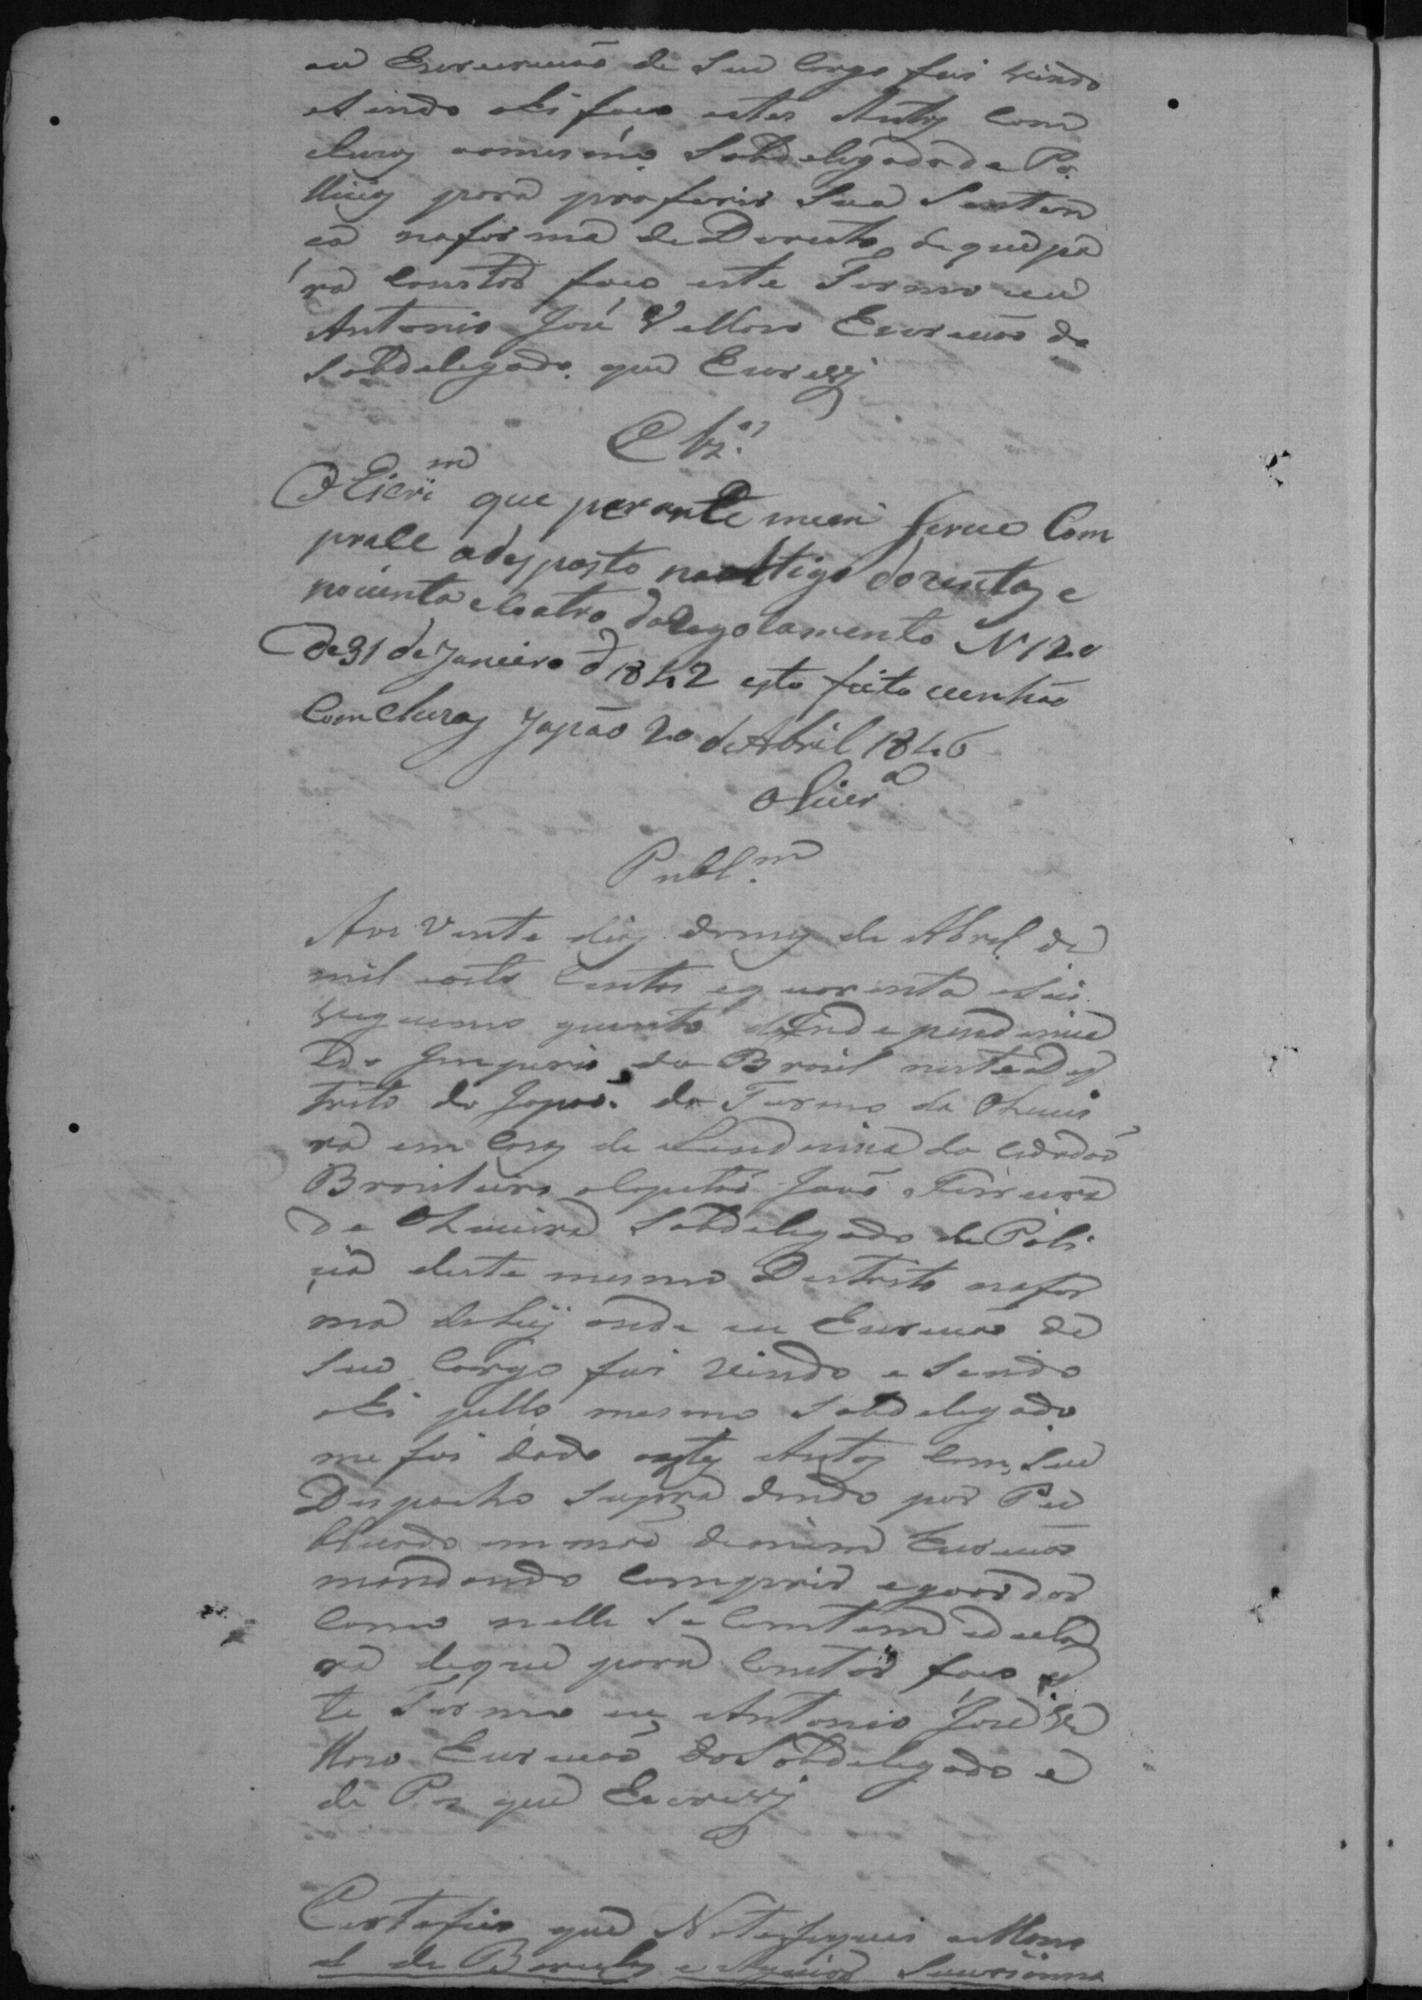 eu Escrivão de Seu Cargo fui vindo
e Sendo ahi faco estes Autos Com
cluzos aomesmo Sobdelegado de Po
llicia para proferir Sua Senten
ca naforma de Dereito, de que pa
ra Constar faco este Termo eu
Antonio José Velloso Escrivão do
Sobdelegado. que Escrevy
Clz.ºˢ
O Escrivm que perante mim serve Com
prace adesposto no artigo dozentos e
no 
venta e coatro do Regolamento N 120
de 31 de Janeiro d 1842 esto feito venhão
Comcluzos Japão 20 de Abril 1846
Oliver.ª
Publ.m
Aos Vente dias domes de Abril de
mil oito Centos e quarenta e Seis
vegecimo quinto da Independencia
Do Imperio do Brasil neste Des
trito do Japão do Termo da Olivei
ra em Caza de Residencia do Cidadão
Brasileiro o Capitão João Ferreira
De Oliveira Sobdelegado de Poli
cia deste mesmo Destrito nafor
ma daLey onde eu Escrivão de
Seu Cargo fui vindo e Sendo
ahi pello mesmo Sobdelegado
me foi dado estes Autos Com Seu
Despacho Supra dando por Pu
blicado em mão demim Escrivão
mandando Comprir e goardar
Como nelle Se Contem e decla
ra deque para Constar faco es
te Termo eu Antonio José Ve
lloso Escrivão do Sobdelegado e
de Paz que Escrevy
Certefico que Notefiquei a Mano
el de